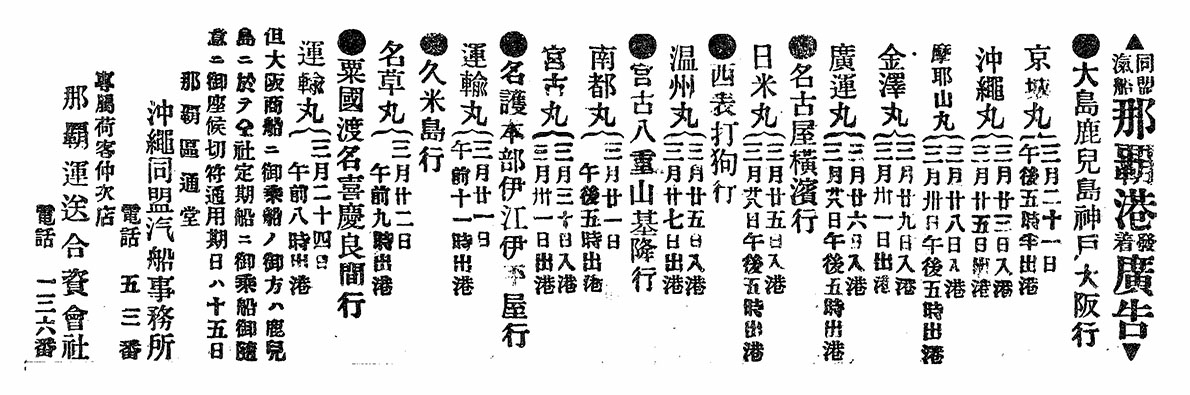 ▲同盟汽船那覇港發着廣告▼
●大島鹿兒島神戸大阪行
京城丸 三月二十一日 午後五時半出港
沖繩丸 三月廿三日入港 三月廿五日出港
摩耶山丸 三月廿八日入港 三月卅日午後五時出港
金澤丸 三月廿九日入港 三月卅一日出港
廣運丸 三月廿六日入港 三月廿八日午後五時出港
●名古屋横濱行
日米丸 三月廿五日入港 三月廿八日午後五時出港
●西表打狗行
温州丸 三月廿五日入港 三月廿七日出港
●宮古八重山基隆行
南都丸 三月廿一日 午後五時出港
宮古丸 三月三十日入港 三月卅一日出港
●名護本部伊江伊平屋行
運輸丸 三月廿一日 午前十一時出港
●久米島行
名草丸 三月廿二日 午前九時出港
●粟國渡名喜慶良間行
運輸丸 三月二十四日 午前八時出港
但大阪商船ニ御乗船ノ御方ハ鹿兒
島ニ於テ仝社定期船ニ御乗船御隨
意ニ御座候切符通用期日ハ十五日
那覇區通堂
沖繩同盟汽船事務所
電話 五三番
專屬荷客仲次店
那覇運送合資會社
電話 一三六番